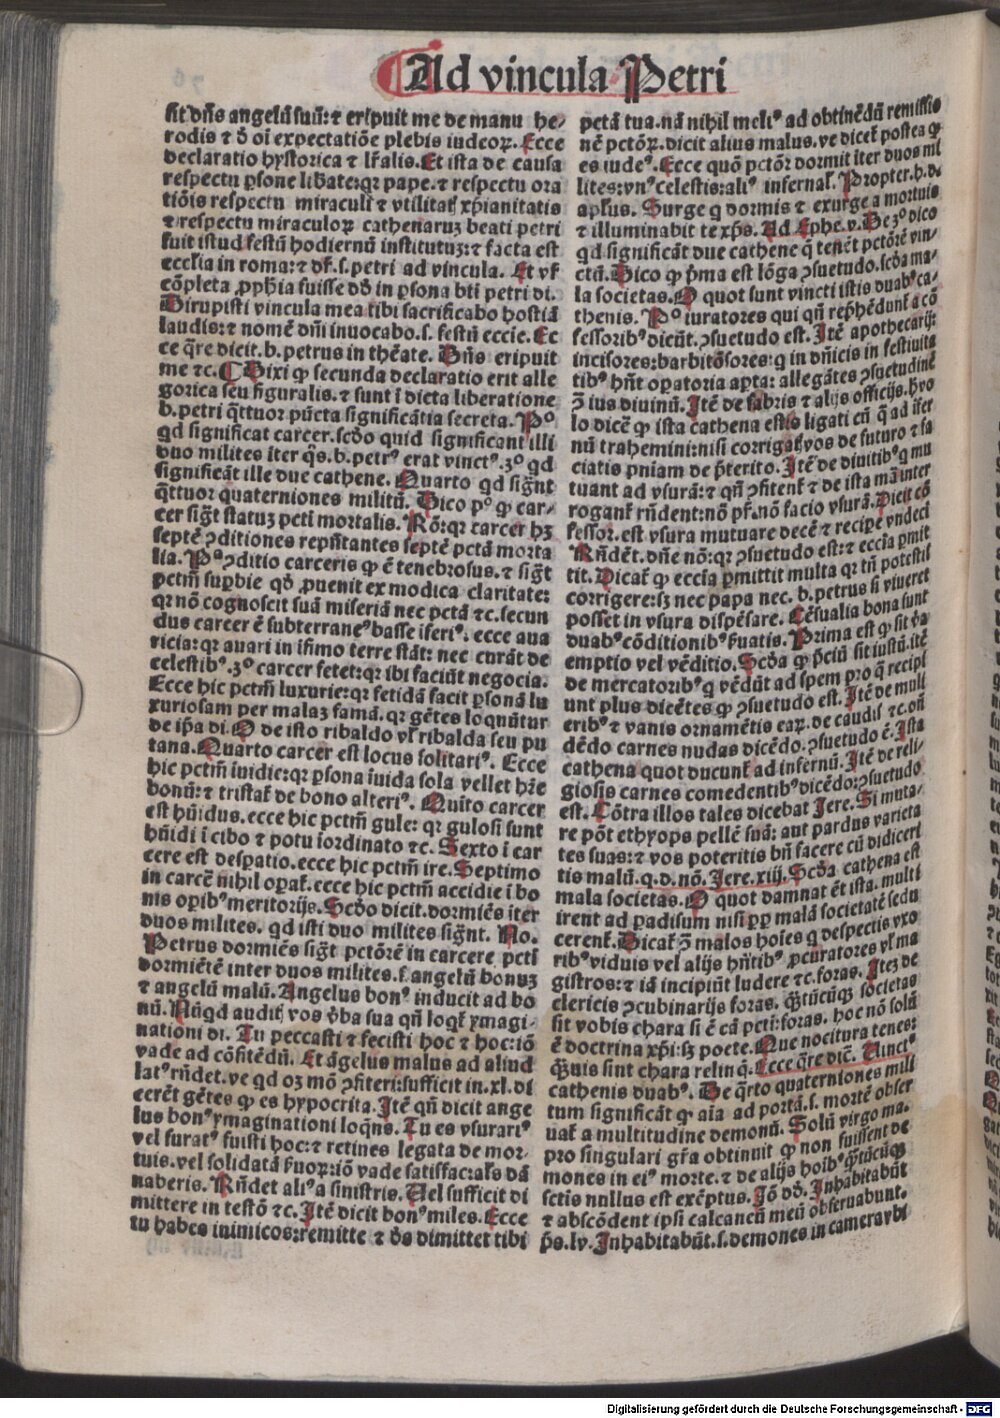 Ad vincula Petri
sit dn̄s angelū suū: ⁊ eripuit me de manu he-
rodis ⁊ đ oī expectatiōe plebis iudeoꝝ. Ecce
declaratio hystorica ⁊ lr̄alis. Et ista de causa
respectu ꝑsone libate: qꝛ pape. ⁊ respectu ora
tiōis respectu miraculi ⁊ vtilitatꝭ xp̄ianitatis
⁊ respectu miraculoꝝ cathenaruꝫ beati petri
fuit istud festū hodiernū institutuꝫ: ⁊ facta est
ecclīa in roma: ⁊ dr̄. s. petri ad vincula. Et vr̄
cōpleta ꝓph̄ia fuisse dō in ꝑsona bt̄i petri di.
Dirupisti vincula mea tibi sacrificabo hostiā
laudis: ⁊ nomē dn̄i inuocabo. s. festū eccīe. Ec
ce q̄re dicit. b. petrus in thēate. Dn̄s eripuit
me ⁊c. ¶ Dixi ꝙ secunda declaratio erit alle
gorica seu figuralis. ⁊ sunt ī dicta liberatione
b. petri q̄ttuor pūcta significātia secreta. Pº
qd significat carcer. scđo quid significant illi
duo milites īter q̄s. b. petrꝰ erat vinctꝰ. 3º qd
significāt ille due cathene. Quarto qd sign̄t
q̄ttuor quaterniones militū. Dico pº ꝙ car-
cer sign̄t statuꝫ pcti mortalis. Rō: qꝛ carcer hꝫ
septē ꝯditiones repn̄tantes septē pctā morta
lia. Pª ꝯditio carceris ꝙ ē tenebrosus. ⁊ sign̄t
pctm̄ suꝑbie qđ ꝓuenit ex modica claritate:
qꝛ nō cognoscit suā miseriā nec pctā ⁊c. secun
dus carcer ē subterraneꝰ basse īferiꝰ. ecce aua
ricia: qꝛ auari in īfimo terre stāt: nec curāt de
celestibꝰ. 3º carcer fetet: qꝛ ibi faciūt negocia.
Ecce hic pctm̄ luxurie: qꝛ fetidā facit ꝑsonā lu
xuriosam per malaꝫ famā. qꝛ gētes loquūtur
de ip̄a di. O de isto ribaldo vl̄ ribalda seu pu
tana. Quarto carcer est locus solitariꝰ. Ecce
hic pctm̄ īuidie: qꝛ ꝑsona īuida sola vellet hr̄e
bonū: ⁊ tristat̄ de bono alteriꝰ. Quīto carcer
est hūidus. ecce hic pctm̄ gule: qꝛ gulosi sunt
hūidi ī cibo ⁊ potu īordinato ⁊c. Sexto ī car
cere est despatio. ecce hic pctm̄ ire. Septimo
in carcē nihil opat̄. ecce hic pctm̄ accidie ī bo
nis opibꝰ meritorijs. Scđo dicit. dormiēs īter
duos milites. qd isti duo milites sign̄t. No.
Petrus dormiēs sign̄t pctōrē in carcere pcti
dormiētē inter duos milites. s. angelū bonuꝫ
⁊ angelū malū. Angelus bonꝰ inducit ad bo
nū. Nūqd auditꝭ vos v̄ba sua qn̄ loqt̄ ymagi-
nationi di. Tu peccasti ⁊ fecisti hoc ⁊ hoc: iō
vade ad cōfitēdū. Et āgelus malus ad aliud
latꝰ rn̄det. ve qd oꝫ mō ꝯfiteri: sufficit in. xl. di
cerēt gētes ꝙ es hypocrita. Itē qn̄ dicit ange
lus bonꝰ ymaginationi loqn̄s. Tu es vsurariꝰ
vel furatꝰ fuisti hoc: ⁊ retines legata de mor-
tuis. vel solidatā ẜuoꝝ: iō vade satisfac: als dā
naberis. Rn̄det aliꝰ a sinistris. Uel sufficit di
mittere in testō ⁊c. Itē dicit bonꝰ miles. Ecce
tu habes inimicos: remitte ⁊ đs dimittet tibi
petā tua. nā nihil meliꝰ ad obtinēdū remissio
nē pctōꝝ. dicit alius malus. ve dicet̄ postea ꝙ
es iudeꝰ. Ecce quō pctōr dormit īter duos mi
lites: vnꝰ celestis: aliꝰ infernal̄. Propter. h. di.
apl̄us. Surge q dormis ⁊ exurge a mortuis
⁊ illuminabit te xp̄s. Ad Ephe. v. De 3º dico
qd significāt due cathene q̄ tenēt pctōrē vin-
ctū. Dico ꝙ pͥma est lōga ꝯsuetudo. scđa ma-
la societas. O quot sunt vincti istis duabꝰ ca-
thenis. Pº iuratores qui qn̄ rep̄hēdunt̄ a cō
fessoribꝰ dicūt. ꝯsuetudo est. Itē apothecarij:
incisores: barbitōsores: q in dn̄icis in festiuita
tibꝰ hn̄t opatoria apta: allegātes ꝯsuetudinē
ꝯ̄ ius diuinū. Itē de fabris ⁊ alijs officijs. h̄ vo
lo dicē ꝙ ista cathena estis ligati cū q̄ ad īfer
nū trahemini: nisi corrigatꝭ vos de futuro ⁊ fa
ciatis pniam de p̄terito. Itē de diuitibꝰ q mu
tuant ad vsurā: ⁊ qn̄ ꝯfitent̄ ⁊ de ista mā inter
rogant̄ rn̄dent: nō pr̄. nō facio vsurā. Dicit cō
fessor. est vsura mutuare decē ⁊ recipe vndeci
Rn̄dēt. dn̄e nō: qꝛ ꝯsuetudo est: ⁊ ecclīa pmit
tit. Dicat̄ ꝙ ecclīa ꝑmittit multa qꝛ tn̄ potestꝭ
corrigere: sꝫ nec papa nec. b. petrus si viueret
posset in vsura dispēsare. Cēsualia bona sunt
duabꝰ cōditionibꝰ ẜuatis. Prima est ꝙ sit v̄a
emptio vel vēditio. Scđa ꝙ p̄ciū sit iustū. itē
de mercatoribꝰ q vēdūt ad spem pro q̄ recipi
unt plus dicētes ꝙ ꝯsuetudo est. Itē de muli
eribꝰ ⁊ vanis ornamētis eaꝝ. de caudis ⁊ c. on̄
dēdo carnes nudas dicēdo: ꝯsuetudo ē. Ista
cathena quot ducunt̄ ad infernū. Itē de reli-
giosis carnes comedentibꝰ dicēdo: ꝯsuetudo
est. Cōtra illos tales dicebat Jere. Si muta-
re pōt ethyops pellē suā: aut pardus varieta
tes suas: ⁊ vos poteritis bn̄ facere cū didiceri
tis malū. q. d. nō. Jere. xiij. Scđa cathena est
mala societas. O quot damnat ēt ista. multi
irent ad padisum nisi ꝓꝑ malā societatē sedu
cerent̄. Dicat̄ ꝯ̄ malos hoīes q despectis vxo
ribꝰ viduis vel alijs hn̄tibꝰ ꝓcuratores vl̄ ma
gistros: ⁊ iā incipiūt ludere ⁊c. foras. Iteꝫ de
clericis ꝯcubinarijs foras. q̄tūcūqꝫ societas
sit vobis chara si ē cā pcti: foras. hoc nō solū
ē doctrina xp̄i: sꝫ poete. Que nocitura tenes:
q̄uis sint chara relinq̄. Ecce q̄re dic̄. Uinctꝰ
cathenis duabꝰ. De q̄rto quaterniones mili
tum significāt ꝙ aīa ad portā. s. mortē obser
uat̄ a multitudine demonū. Solū virgo ma-
pro singulari gr̄a obtinuit ꝙ non fuissent de
mones in eiꝰ morte. ⁊ de alijs hoībꝰ q̄tūcūqꝫ
sctis nullus est exēptus. Jō đđ. Inhabitabūt
⁊ abscōdent ipsi calcaneū meū obseruabunt.
p̄s. lv. Inhabitabūt. s. demones in camera vbi
Digitalisierung gefördert durch die Deutsche Forschungsgemeinschaft - DFG